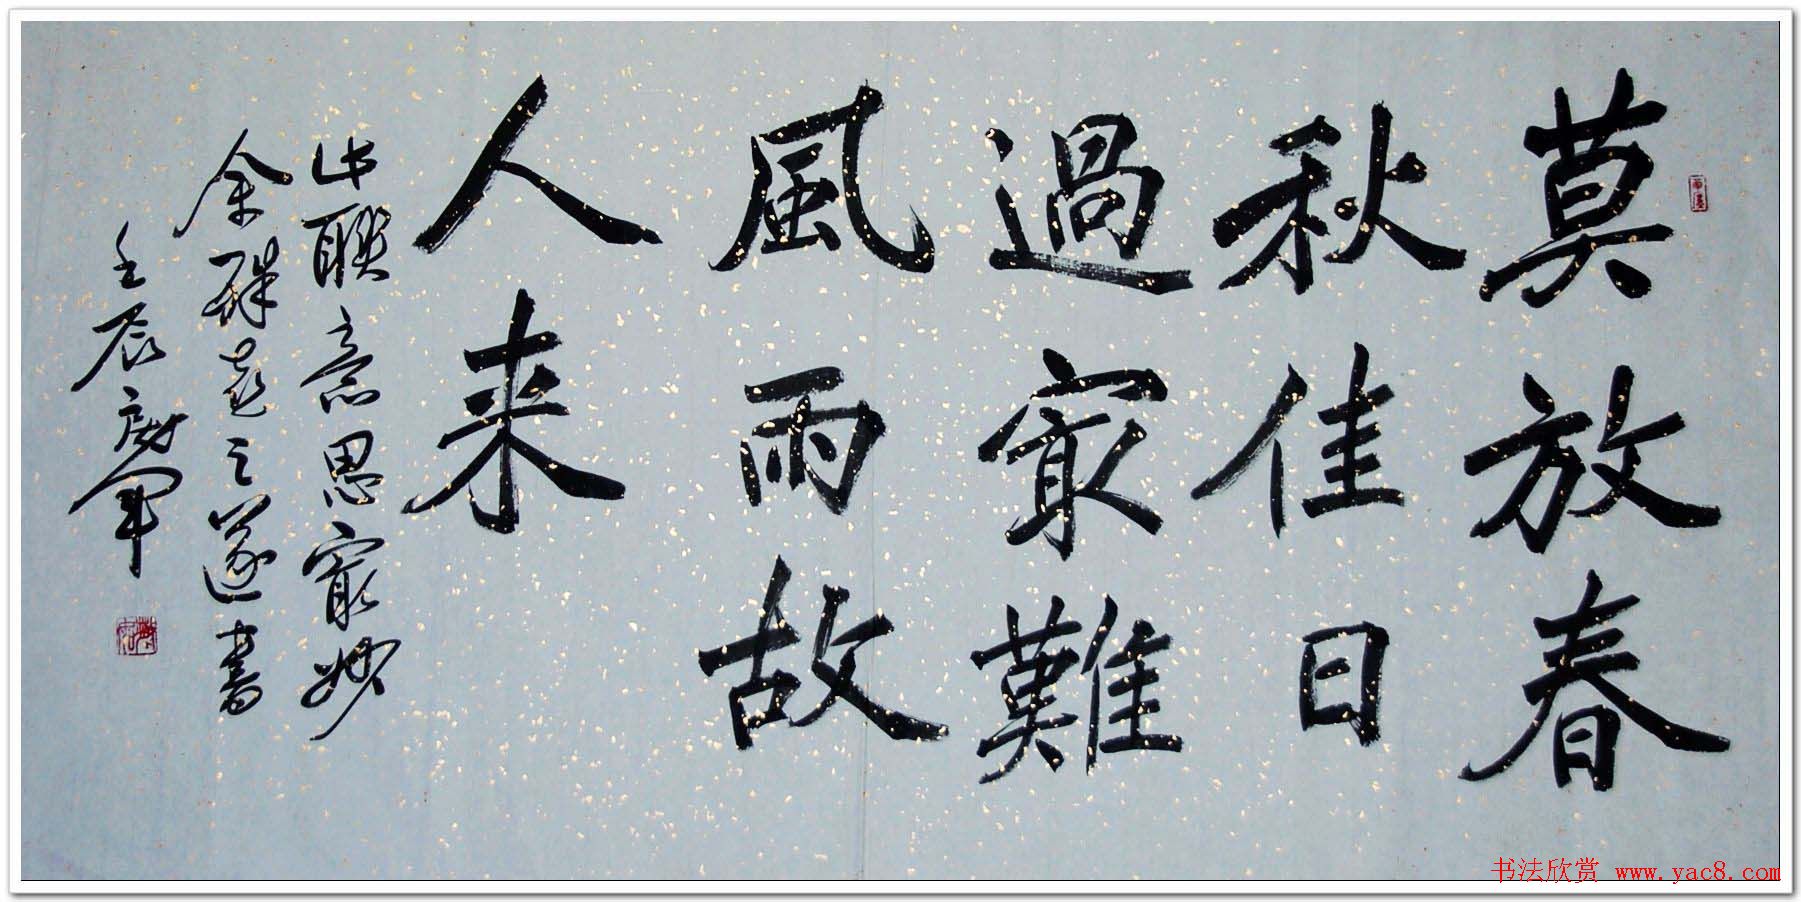 莫放春
秋佳日
過最難
風雨故
人来
此聯意思最妙
余殊喜之遂書
壬辰 军
书法欣赏 www.yac8.com